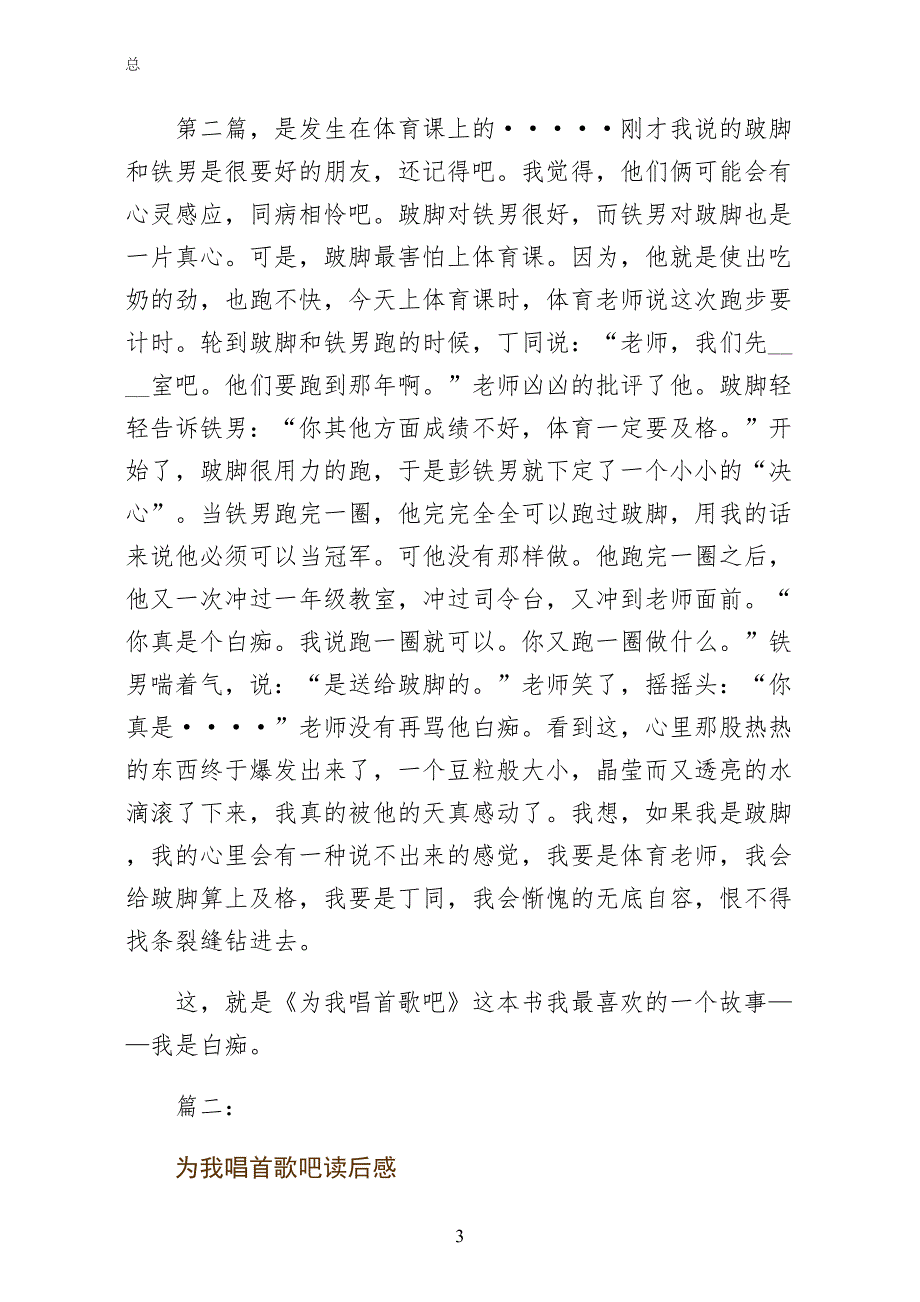 总
第二篇，是发生在体育课上的·····刚才我说的跛脚
和铁男是很要好的朋友，还记得吧。我觉得，他们俩可能会有
心灵感应，同病相怜吧。跛脚对铁男很好，而铁男对跛脚也是
一片真心。可是，跛脚最害怕上体育课。因为，他就是使出吃
奶的劲，也跑不快，今天上体育课时，体育老师说这次跑步要
计时。轮到跛脚和铁男跑的时候，丁同说：“老师，我们先__
__室吧。他们要跑到那年啊。”老师凶凶的批评了他。跛脚轻
轻告诉铁男：“你其他方面成绩不好，体育一定要及格。”开
始了，跛脚很用力的跑，于是彭铁男就下定了一个小小的“决
心”。当铁男跑完一圈，他完完全全可以跑过跛脚，用我的话
来说他必须可以当冠军。可他没有那样做。他跑完一圈之后，
他又一次冲过一年级教室，冲过司令台，又冲到老师面前。“
你真是个白痴。我说跑一圈就可以。你又跑一圈做什么。”铁
男喘着气，说：“是送给跛脚的。”老师笑了，摇摇头：“你
真是····”老师没有再骂他白痴。看到这，心里那股热热
的东西终于爆发出来了，一个豆粒般大小，晶莹而又透亮的水
滴滚了下来，我真的被他的天真感动了。我想，如果我是跛脚
，我的心里会有一种说不出来的感觉，我要是体育老师，我会
给跛脚算上及格，我要是丁同，我会惭愧的无底自容，恨不得
找条裂缝钻进去。
这，就是《为我唱首歌吧》这本书我最喜欢的一个故事—
—我是白痴。
篇二：
为我唱首歌吧读后感
3